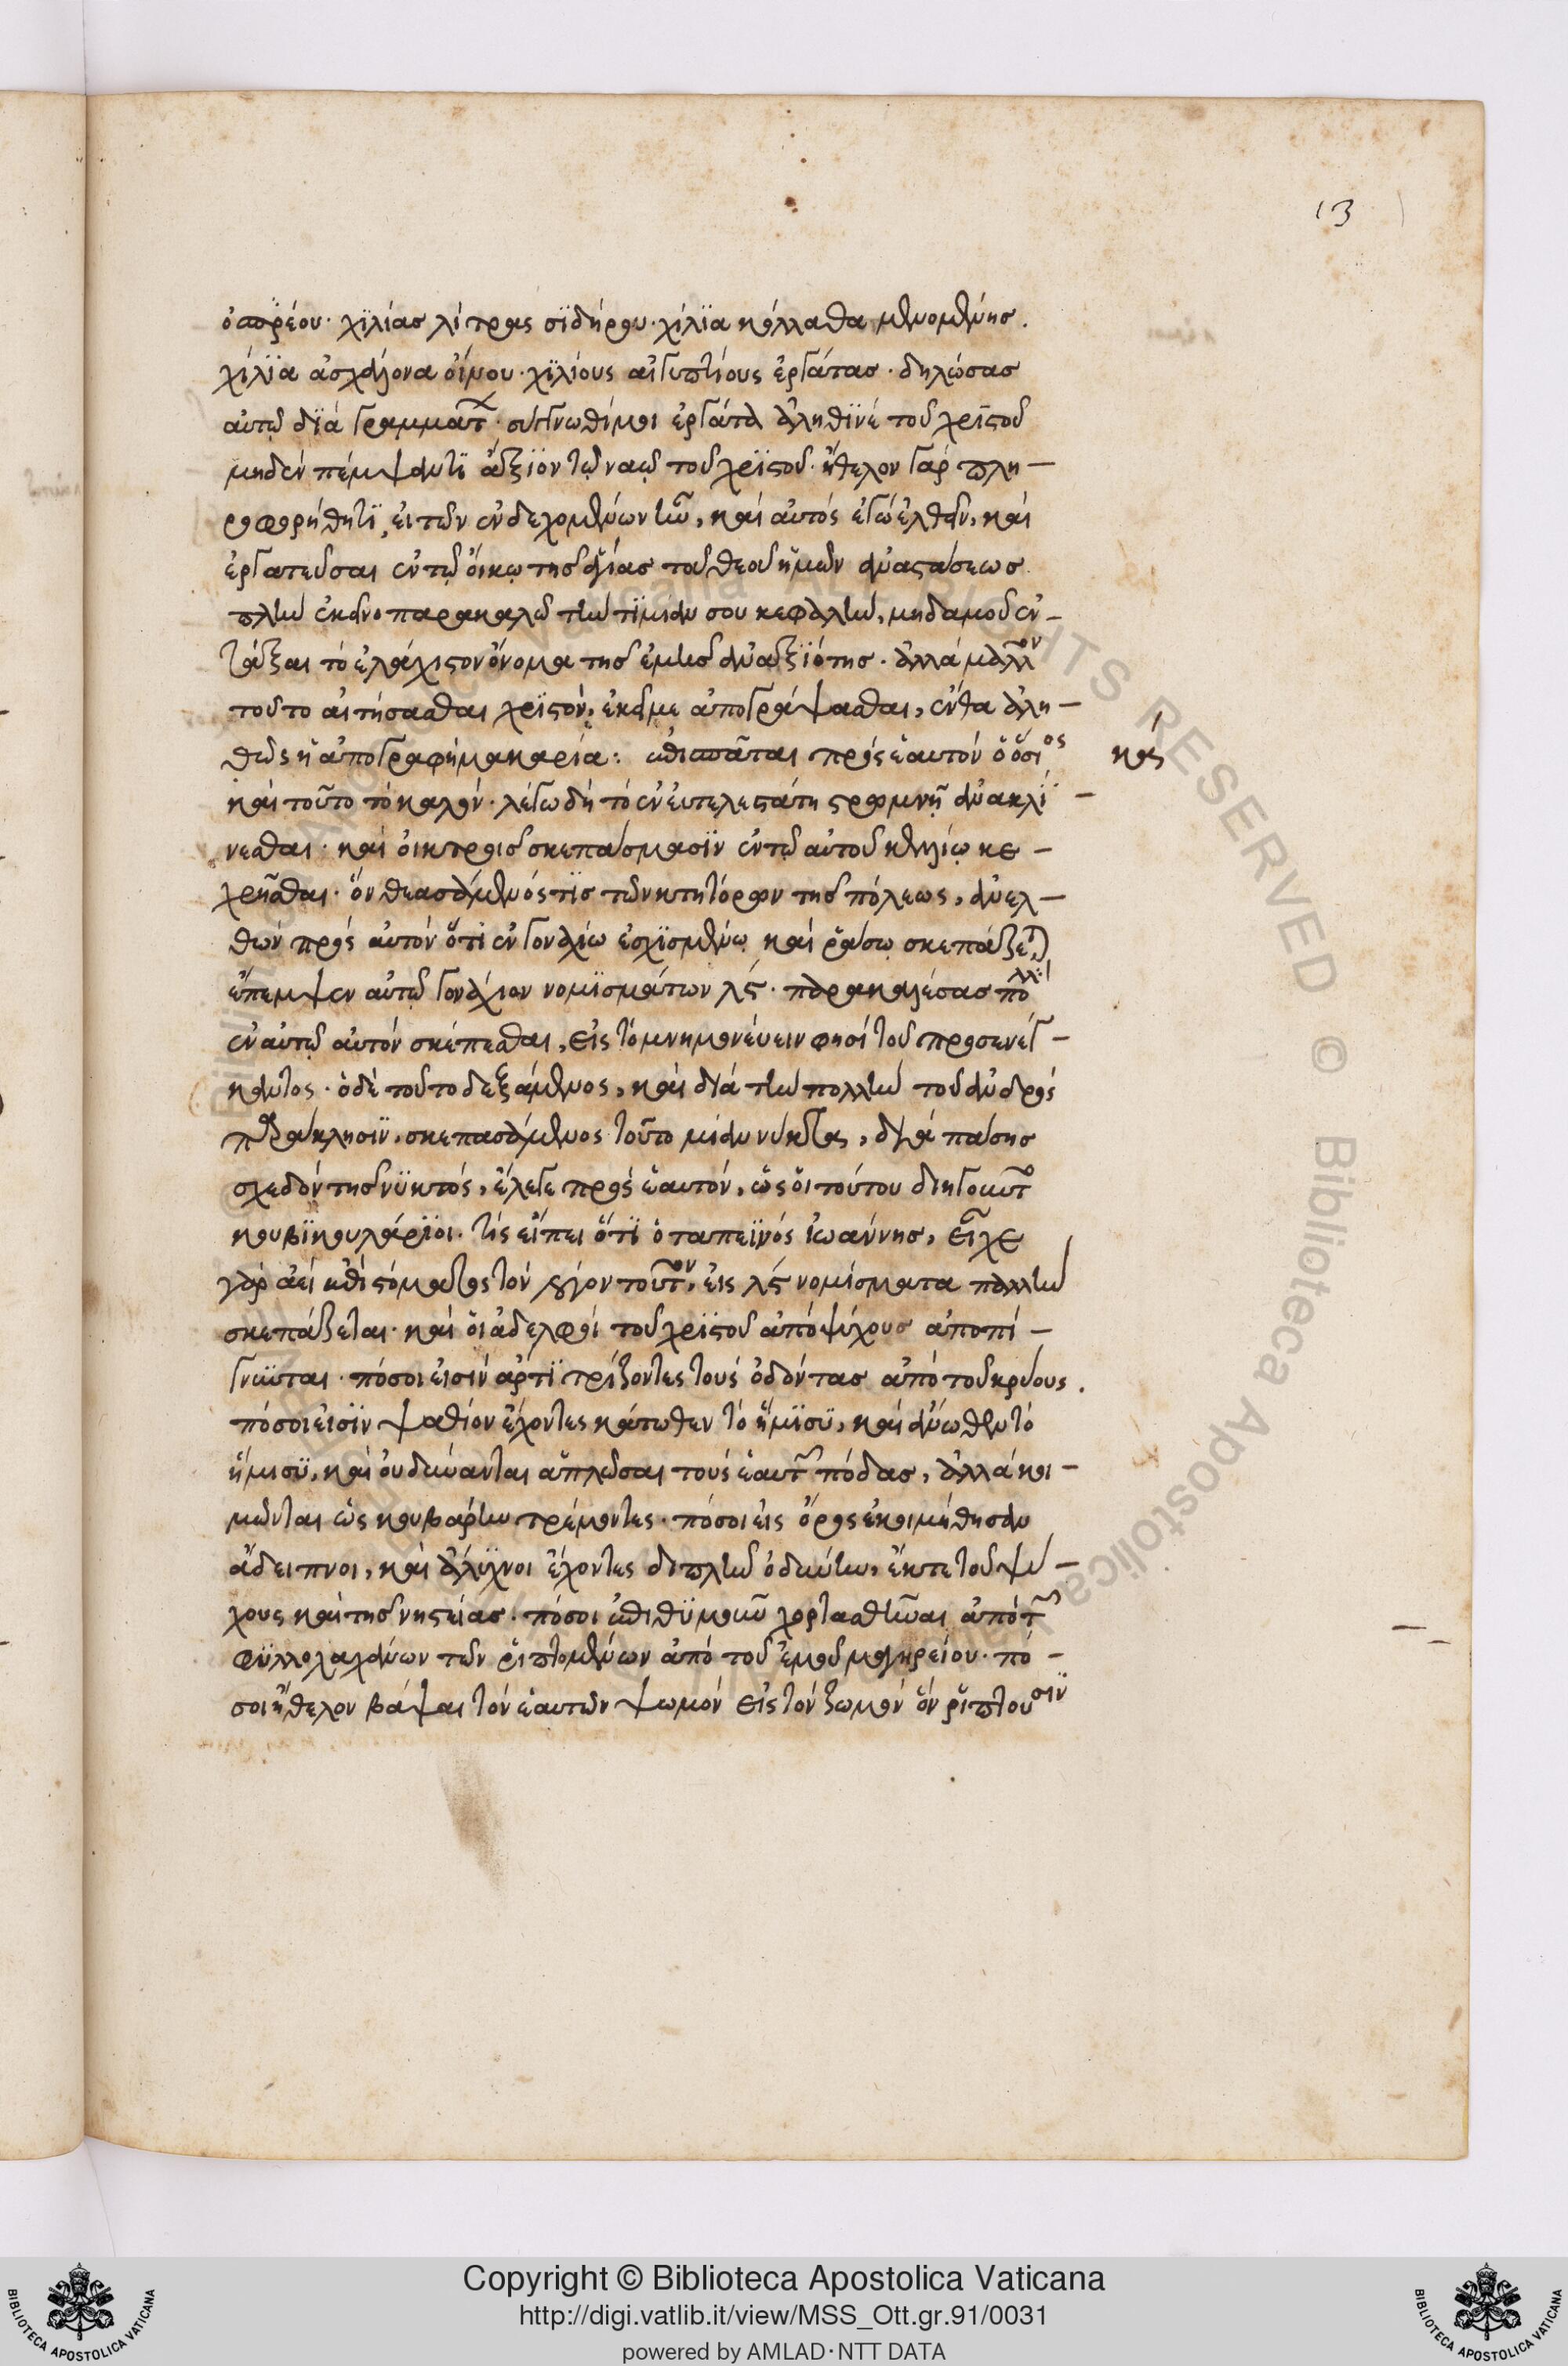 13
ὀσπρέου· χϊλίας λίτρας σϊδήρου· χίλϊα κόλλαθα μενομένης.
χίλϊα ἀσχαλόνα οἴνου· χϊλίους αἰγυπτίους ἐργάτας· δηλώσας
αὐτῷ δϊὰ γραμμάτ· σύγγνωθί μοι ἐργάτα ἀληθϊνὲ τοῦ χρϊστοῦ
μηδὲν πέμψαντϊ ἄξϊον τῷ ναῷ τοῦ χρϊστοῦ· ἤθελον γὰρ πλη–
ροφορήθητϊ, εἰ τῶν ἐνδεχομένων ἦν, καὶ αὐτὸς ἐγὼ ἐλθεῖν, καὶ
ἐργατεῦσαι ἐν τῷ οἴκῳ τῆς ἁγίας τοῦ θεοῦ ἡμῶν ἀναστάσεως
πλὴν ἐκεῖνο παρακαλῶ τὴν τϊμίαν σου κεφαλὴν, μηδαμοῦ ἐν–
τάξαι τὸ ἐλάχιστον ὄνομα τῆς ἐμῆς ἀναξϊότης· ἀλλὰ μᾶλλον
τοῦτο αἰτήσασθαι χρϊστὸν, ἐκεῖ με ἀπογράψασθαι, ἔνθα ἀλη–
θῶς ἡ ἀπογραφὴ μακαρία: ἐπισπᾶται πρὸς ἑαυτὸν ὁ ὅσιος
κα
καὶ τοῦτο τὸ καλόν· λέγω δὴ τὸ ἐν εὐτελεστάτῃ στρωμνῇ ἀνακλί–
νεσθαι· καὶ οἰκτροῖς σκεπάσμασϊν ἐν τῷ αὐτοῦ κελλίῳ κε–
χρῆσθαι· ὃν θεασάμενός τϊς τῶν κτητόρων τῆς πόλεως, ἀνελ–
θὼν πρὸς αὐτὸν ὅτϊ ἐν γονάχίω ἐσχϊσμένῳ καὶ ῥάσῳ σκεπάζεται
ἔπεμψεν αὐτῷ γονάχιον νομϊσμάτων λς· παρακαλέσας πολλὰ
ἐν αὐτῷ αὐτὸν σκέπεσθαι, εἰς τὸ μνημονεύειν φησὶ τοῦ προσενέγ–
καντος· ὁ δὲ τοῦτο δεξάμενος, καὶ διὰ τὴν πολλὴν τοῦ ἀνδρὸς
παράκλησϊν, σκεπασάμενος τοῦτο μίαν νύκτα, διὰ πάσης
σχεδὸν τῆς νϋκτὸς, ἔλεγε πρὸς ἑαυτὸν, ὡς οἱ τούτου διηγοῦντο
κουβϊκουλάρϊοι· τίς εἴπει ὅτϊ ὁ ταπεϊνὸς ἰωάννης, εἶχε
γὰρ ἀεὶ ἐπὶ στόματος τὸν λόγον τοῦτον, εἰς λς νομίσματα παλλὶν
σκεπάζεται· καὶ οἱ ἀδελφοὶ τοῦ χρϊστοῦ ἀπὸ ψύχους ἀποπί–
γνυνται· πόσοι εἰσὶν ἄρτϊ τρίζοντες τοὺς ὀδόντας ἀπὸ τοῦ κρύους.
πόσοι εἰσϊν ψαθίον ἔχοντες κάτωθεν τὸ ἥμϊσϋ, καὶ ἄνωθεν τὸ
ἥμισϋ, καὶ οὐ δύνανται ἁπλῶσαι τοὺς ἑαυτῶν πόδας, ἀλλὰ κοι–
μῶνται ὡς κουβάριν τρέμοντες· πόσοι εἰς ὄρος ἐκοιμήθησαν
ἄδειπνοι, καὶ ἄλυχνοι ἔχοντες διπλὴν ὀδύνην, ἔκ τε τοῦ ψύ–
χους καὶ τῆς νηστείας· πόσοι ἐπιθϋμοῦν χορτασθῆναι ἀπὸ τῶν
φϋλλολαχάνων τῶν ῥιπτομένων ἀπὸ τοῦ ἐμοῦ μαγηρείου· πό–
σοι ἤθελον βάψαι τὸν ἑαυτῶν ψωμὸν εἰς τὸν ζωμὸν ὃν ῥίπτουσϊν
Copyright © Biblioteca Apostolica Vaticana
http://digi.vatlib.it/view/MSS_Ott.gr.91/0031
powered by AMLAD·NTT DATA